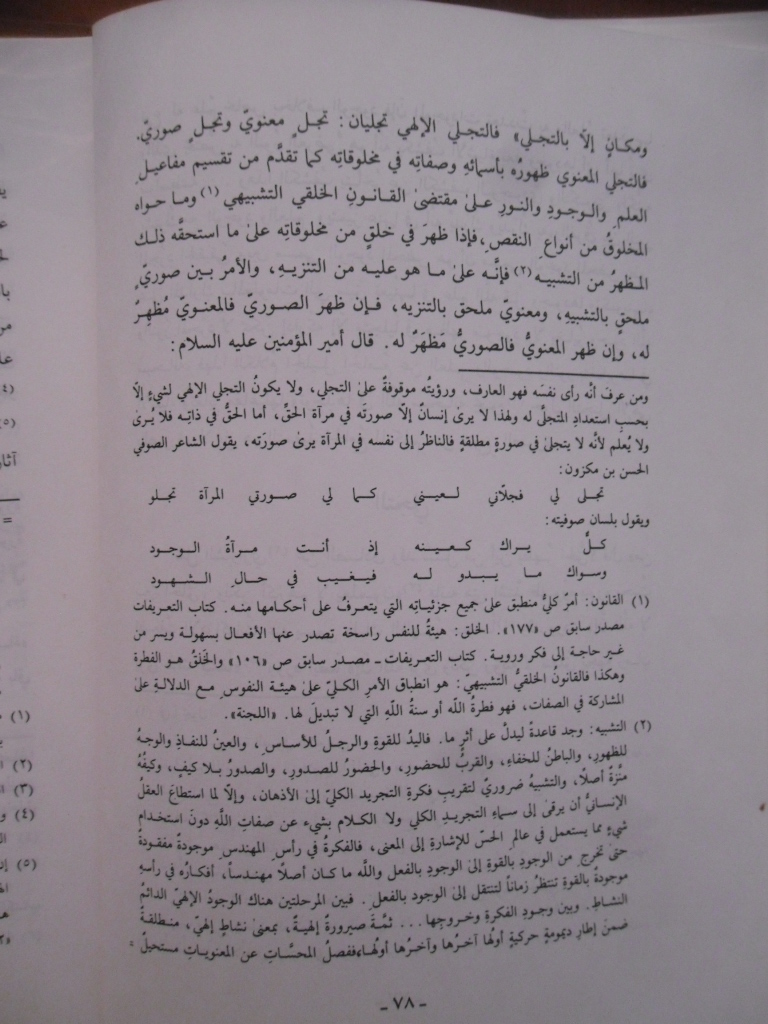 ومكانٍ إلّا بالتجلي» فالتجلي الإلهي تجليان: تجلٍ معنويّ وتجلٍ صوريّ.
فالتجلي المعنوي ظهورُه بأسمائهِ وصفاتِه في مخلوقاتِه كما تقدَّم من تقسيم مفاعيل
العلمِ والوجودِ والنورِ على مقتضىٰ القانونِ الخلقي التشبيهي (١) وما حواه
المخلوقُ من أنواعِ النقصِ، فإذا ظهرَ في خلقٍ من مخلوقاتِه على ما استحقَّه ذلك
المظهرُ من التشبيه (٢) فإنَّه علىٰ ما هو عليه من التنزيهِ، والأمرُ بين صوريّ
ملحقٍ بالتشبيهِ، ومعنويّ ملحق بالتنزيه، فإن ظهرَ الصوريّ فالمعنويّ مُظهِرٌ
له، وإن ظهر المعنويُّ فالصوريُّ مَظهَرٌ له. قال أمير المؤمنين عليه السلام:
ومن عرفَ أنَّه رأى نفسَه فهو العارف، ورؤيتُه موقوفةٌ علىٰ التجلي، ولا يكونُ التجلي الإلهي لشيءٍ إلّا
بحسبِ استعدادِ المتجلَّى له ولهذا لا يرىٰ إنسانٌ إلّا صورتَه في مرآة الحقّ، أما الحقُّ في ذاتِه فلا يُرىٰ
ولا يُعلم لأنَّه لا يتجلىٰ في صورةٍ مطلقةٍ فالناظرُ إلى نفسه في المرآة يرىٰ صورَته، يقول الشاعر الصوفي
الحسن بن مكزون:
تجلى لي فجلّاني لعيني كما لي صورتي المرآة تجلو
ويقول بلسان صوفيته:
كلٌّ يراك كعينه إذ أنت مرآةُ الوجود
وسواك ما يبدو له فيغيب في حالِ الشهود
(١) القانون: أمرٌ كليٌّ منطبق علىٰ جميع جزئياتِه التي يتعرفُ علىٰ أحكامها منه. كتاب التعريفات
مصدر سابق ص «١٧٧». الخلق: هيئةٌ للنفس راسخة تصدر عنها الأفعال بسهولة ويسر من
غير حاجة إلى فكر وروية. كتاب التعريفات ـ مصدر سابق ص «١٠٦» والخَلقُ هو الفطرة
وهكذا فالقانونُ الخلقيُّ التشبيهيّ: هو انطباق الأمرِ الكليّ علىٰ هيئة النفوسِ مع الدلالةِ علىٰ
المشاركة في الصفات، فهو فطرةُ اللّٰه أو سنةُ اللّٰهِ التي لا تبديلَ لها. «اللجنة».
(٢) التشبيه: وجد قاعدةً ليدلَّ علىٰ أثرٍ ما. فاليدُ للقوةِ والرجلُ للأساسِ، والعينُ للنفاذِ والوجهُ
للظهورِ، والباطنُ للخفاءِ، والقربُ للحضورِ، والحضورُ للصدورِ، والصدورُ بلا كيفٍ، وكيفُهُ
منُزهٌ أصلًا، والتشبيهُ ضروريّ لتقريبِ فكرةِ التجريد الكليّ إلىٰ الأذهان، وإلّا لما استطاعَ العقلُ
الإنسانيُّ أن يرقىٰ إلى سماءِ التجريدِ الكلي ولا الكلام بشيء عن صفاتِ اللَّهِ دونَ استخدام
شيءٍ مما يستعمل في عالمِ الحسّ للإشارةِ إلى المعنى، فالفكرةُ في رأس المهندسِ موجودةٌ مفقودةٌ
حتىٰ تخرجَ من الوجودِ بالقوةِ إلىٰ الوجودِ بالفعل واللَّه ما كان أصلًا مهندساً، أفكارُه في رأسهِ
موجودةٌ بالقوةِ تنتظرُ زماناً لتنتقل إلىٰ الوجود بالفعلِ. فبين المرحلتين هناك الوجودُ الإلهيّ الدائمُ
النشاطِ. وبين وجودِ الفكرةِ وخروجِها... ثمَّةَ صيرورةٌ إلهيةٌ، بمعنىٰ نشاطٍ إلهيّ، منطلقةٌ
ضمنَ إطارِ ديمومةٍ حركيةٍ أولُها آخرُها وآخرُها أولُهاءففصلُ المحسَّاتِ عن المعنوياتِ مستحيلٌ =
ـ ٧٨ ـ